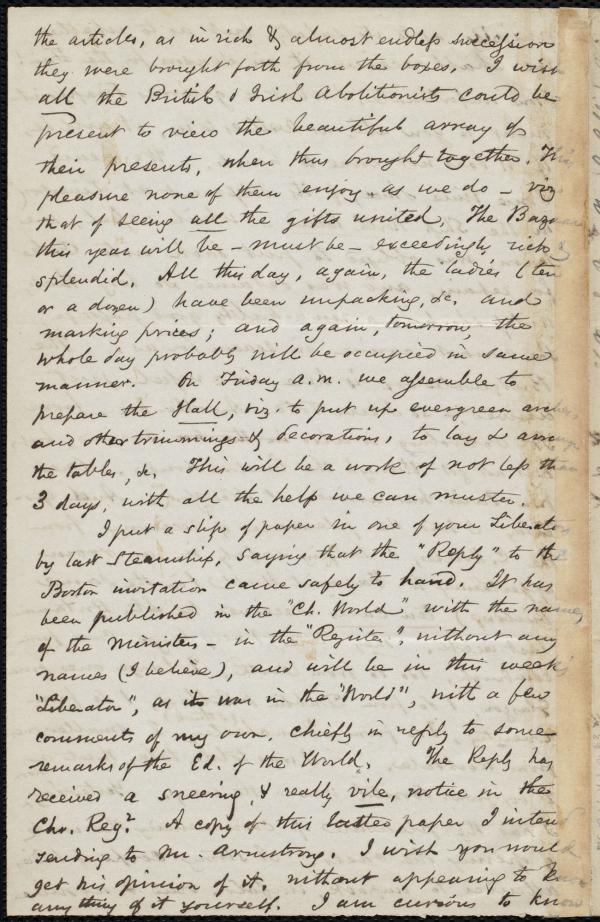 the articles, as in rich & almost endless succession
they were brought forth from the boxes. I wish
all the British & Irish Abolitionists could be
present to view the beautiful array of
their presents, when thus brought together. This
pleasure none of them enjoy as we do – viz.
that of seeing all the gifts united. The Bazaar
this year will be – must be – exceedingly rich &
splendid. All this day, again, the ladies (ten
or a dozen) have been unpacking, &c. and
marking prices; and again, tomorrow, the
whole day probably will be occupied in same
manner. On Friday a.m. we assemble to
prepare the Hall, viz. to put up evergreen arches,
and other trimmings & decorations, to lay &
the tables, &c. This will be a work of not less than
3 days, with all the help we can muster.
I put a slip of paper in one of your Liberators
by last Steamship, saying that the "Reply" to the
Boston invitation came safely to hand. It has
been published in the "Ch. World" with the names
of the Ministers – in the "Register", without any
names (I believe), and will be in this week's
"Liberator", as it was in the "World", with a few
comments of my own, chiefly in reply to some
remarks of the Ed. of the World. The Reply has
received a sneering, & really vile, notice in the
Chr. Regr. A copy of this latter paper I intend
sending to Mr. Armstrong. I wish you would
get his opinion of it, without appearing to know
any thing of it yourself. I am curious to know